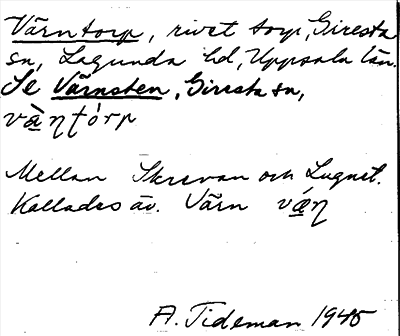 Värntorp, rivet torp, Giresta
sn, Lagunda hd, Uppsala län.
Se Värnsten, Giresta sn,
væ̀ɳʈórp
Mellan Skrevan och Lugnet.
Kallades äv. Värn vǽɳ
A. Tideman 1945